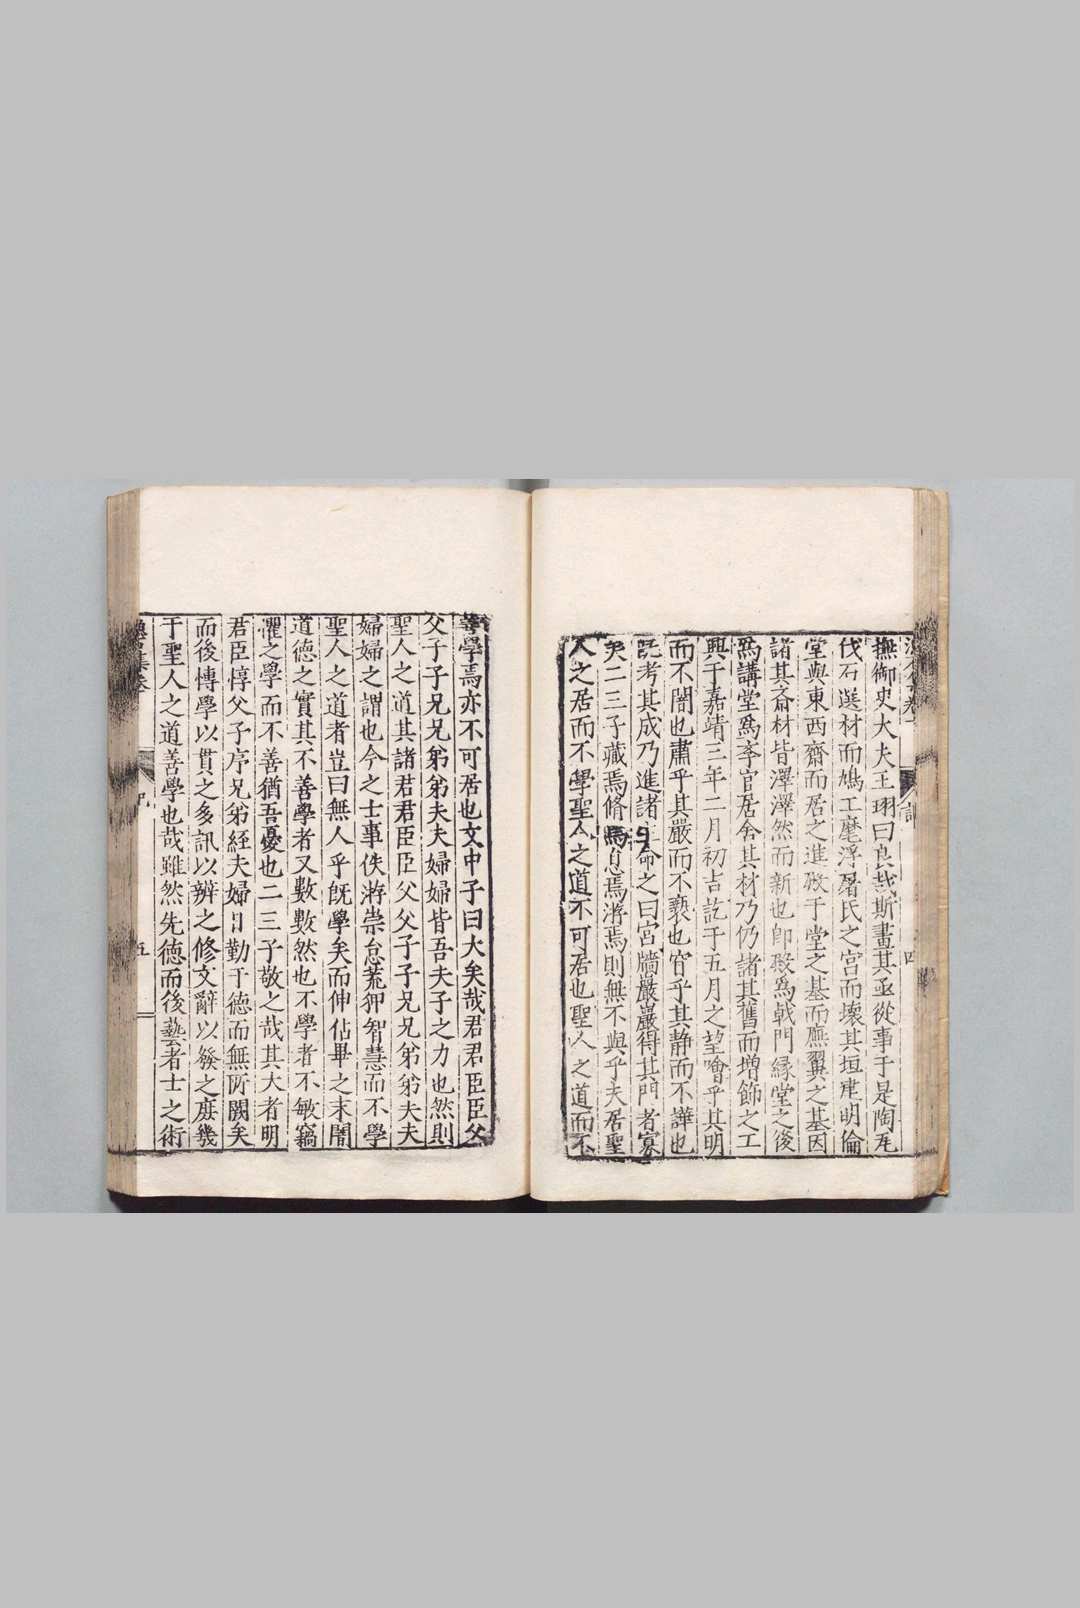 撫御史大夫王珝曰良哉斯畫其亟從事于是陶瓦
伐石選材而鳩工麾浮屠氏之宮而壞其垣建明倫
堂與東西齋而居之進殿于堂之基而廡翼之基因
諸其斎材皆澤澤然而新也卽殿爲戟門緣堂之後
爲講堂爲李官居舍其材乃仍諸其舊而增飾之工
興于嘉靖三年二月初吉訖于五月之望噲乎其明
而不闇也肅乎其嚴而不褻也窅乎其靜而不譁也
旣考其成乃進諸生命之曰宮牆巖巖得其門者寡
矣二三子藏焉脩焉息焉游焉則無不與乎夫居聖
人之居而不學聖人之道不可居也聖人之道而不
善學焉亦不可居也文中子曰大矣哉君君臣臣父
父子子兄兄弟弟夫夫婦婦皆吾夫子之力也然則
聖人之道其諸君君臣臣父父子子兄兄弟弟夫夫
婦婦之謂也今之士事佚游崇怠荒狎智慧而不學
聖人之道者豈曰無人乎旣學矣而伸佔畢之末闇
道德之實其不善學者又數數然也不學者不敏竊
懼之學而不善猶吾憂也二三子敬之哉其大者明
君臣惇父子序兄弟經夫婦日勤于德而無所闕矣
而後博學以貫之多訊以辨之修文辭以發之庶幾
于聖人之道善學也哉雖然先德而後藝者士之術
記
四
五